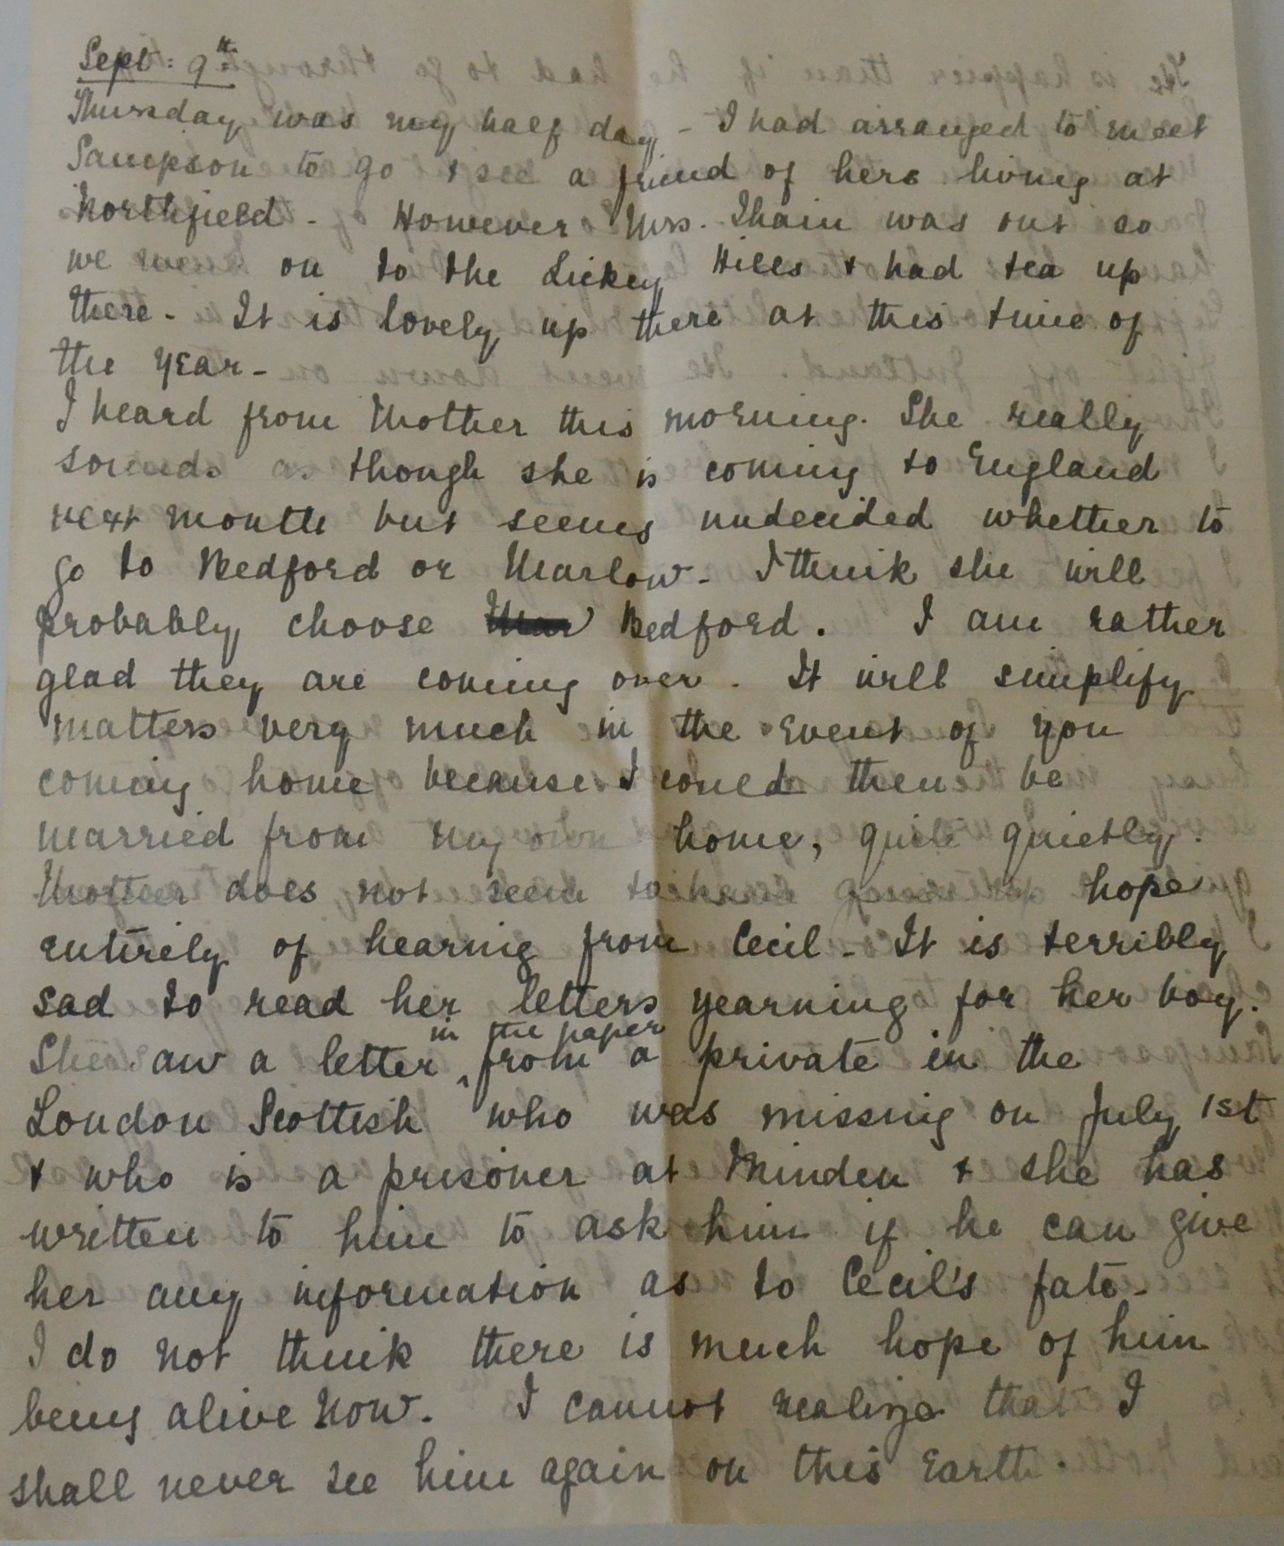 Sept: 9th
Thursday was my half day - I had arranged to meet
Sampson to go & see a friend of hers living at
Northfield - However Mrs. Thain was out so
we went on to the Lickey Hills & had tea up
there - It is lovely up there at this time of
the year -
I heard from Mother this morning. She really
sounds as though she is coming to England
next month but seems undecided whether to
go to Bedford or Marlow - I think she will
probably choose Mar Bedford. I am rather
glad they are coming over. It will simplify
matters very much in the event of you
coming home because I could then be
married from my own home, quite quietly.
Mother does not seem to hope
entirely of hearing from Cecil - It is terribly
sad to read her letters yearning for her boy.
in the paper
She saw a letter from a private in the
London Scottish who was missing on July 1st
& who is a prisoner at Minden & she has
written to him to ask him if he can give
her any information as to Cecil's fate -
I do not think there is much hope of him
being alive now. I cannot realize that I
shall never see him again on this Earth.